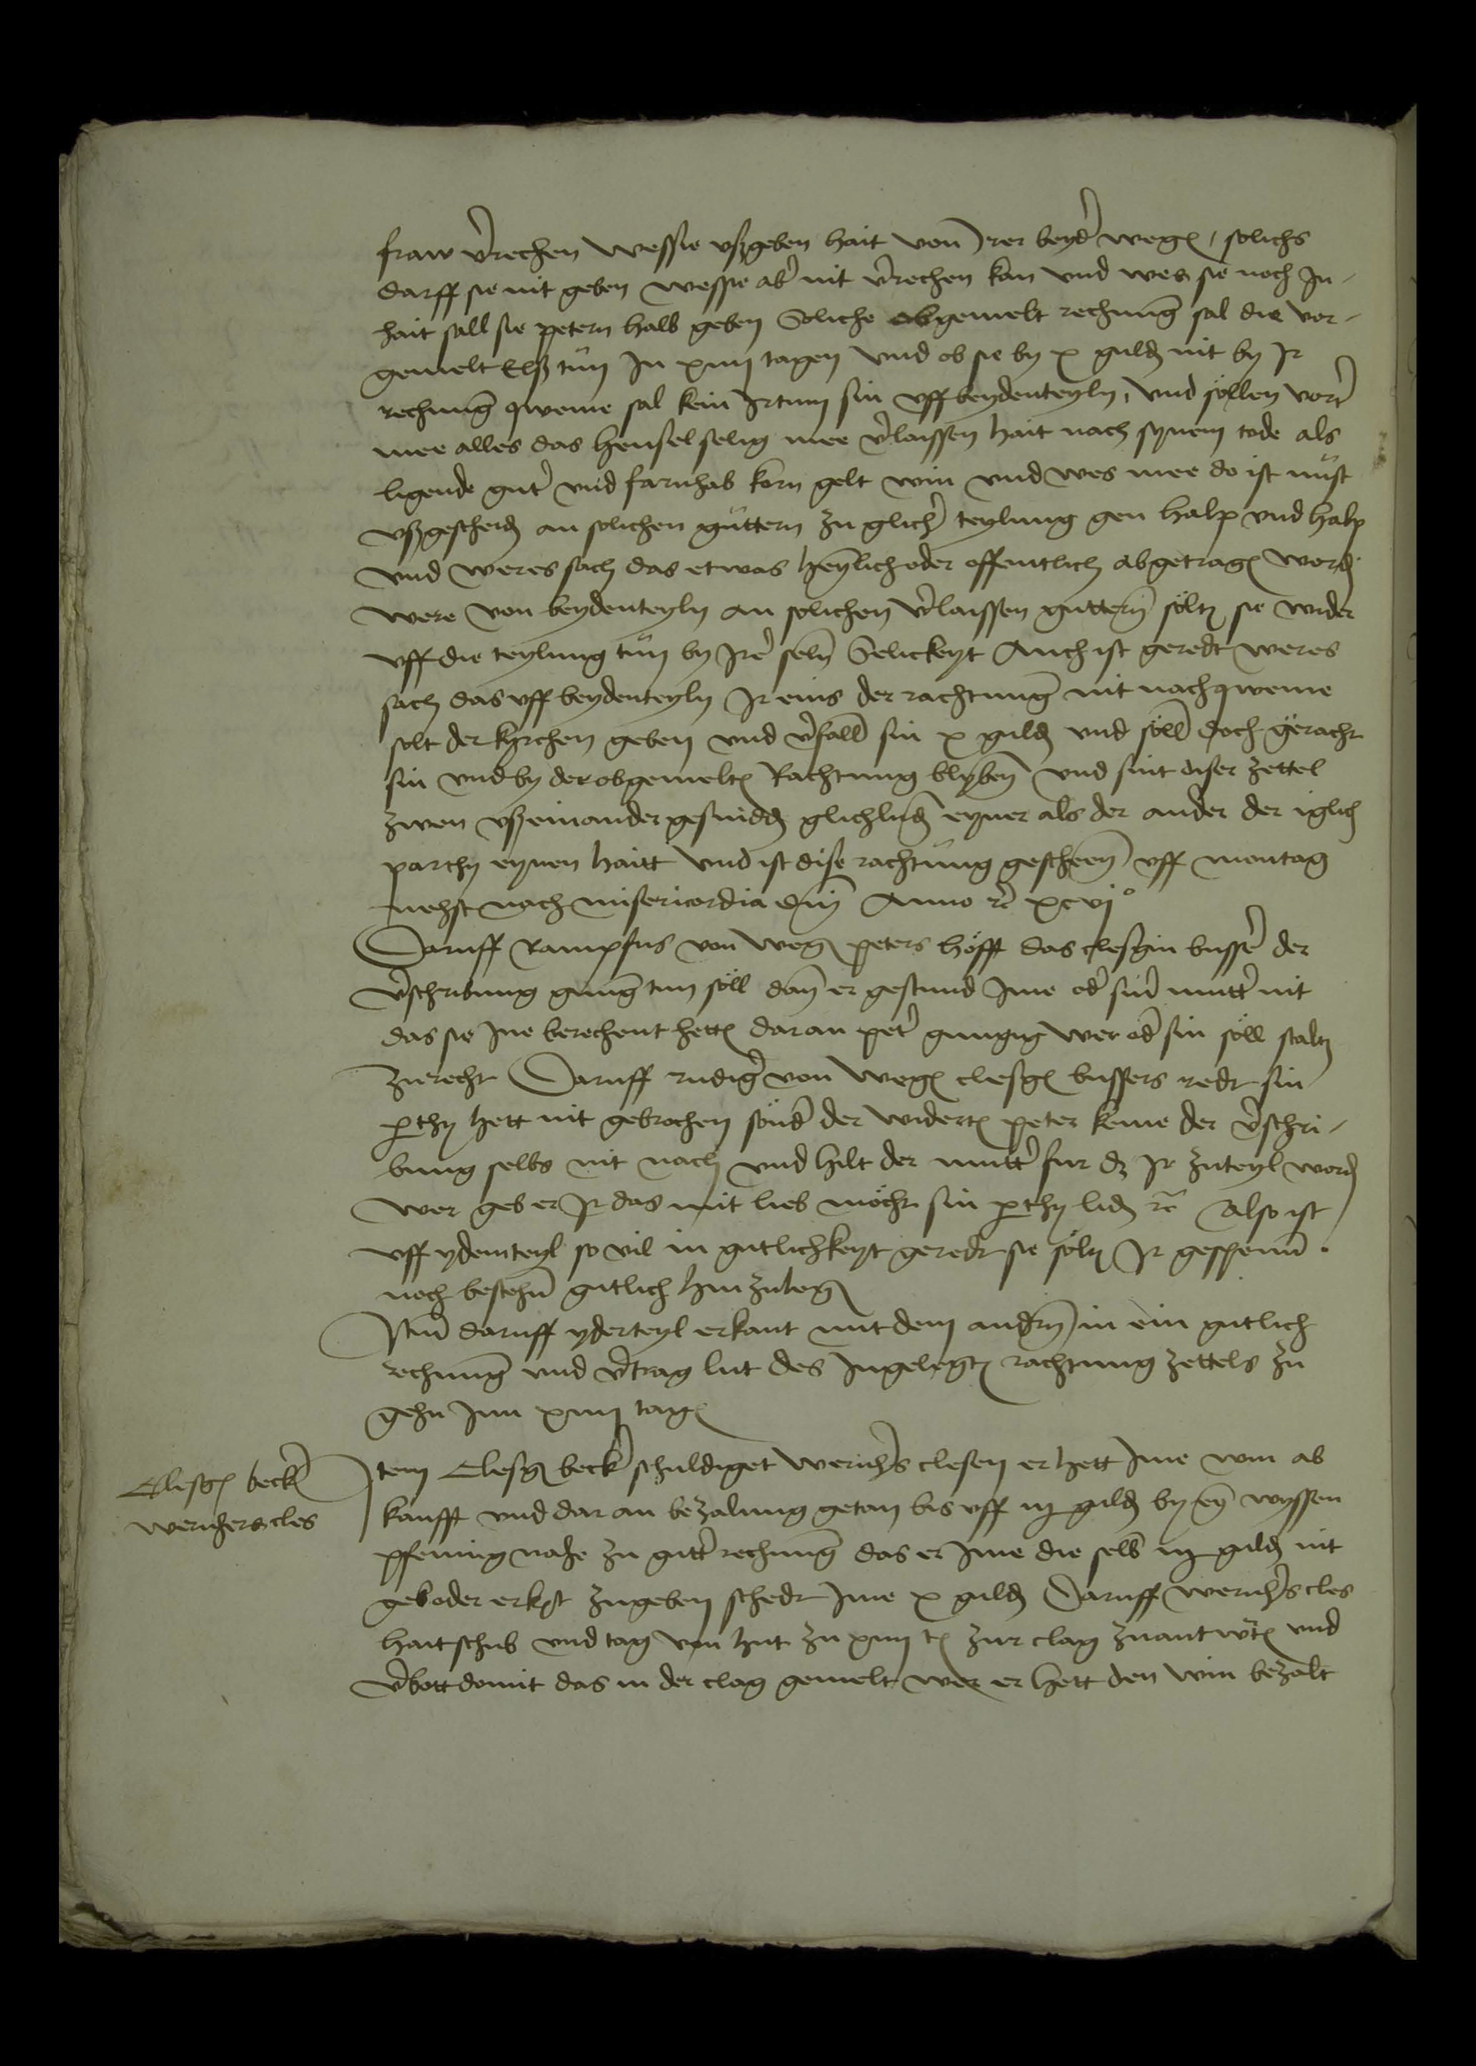 fraw v̾rechen wessie vßgeben hait von Irer beyd̾ wegen / solichs
darff sie nit geben wessie ab̾ nit v̾rechen kan vnd wes sie noch In-
hait sall sie petern halb geben Soliche obgemelt rechnung sal die vor-
gemelt Elß tůn In xiiij tagen vnd ob sie by x guld nit by Ir
rechnung qweme sal kein Irtum sin vff beydenteyln, vnd söllen vort̾
mee alles das henselselig mee v̾laissen hait nach synem tode als
ligende gut̾ vnd farnhab korn gelt win vnd wes mee do ist nůst
vßgescheid an solichen güttern zu glich̾ teylung gen halp vnd halp
vnd weres sach das etwas heymlich oder offentlich abgetragen word
were von beydenteyln an solichen v̾laissen guttern sölten sie wider
vff die teylung tůn by Ire seln Selickeyt Auch ist geredt weres
sach das vff beydenteyln Ir eins der rachtung nit nachqweme
solt der kyrchen geben vnd v̾falln sin x guld vnd sölln doch geracht
sin vnd by der obgemelten Rachtung blyben vnd sint diser zettel
zwen vßeinander gesnidden glichluden eyner als der ander der iglich
parthy eynen haitt Vnd ist dise rachtung gescheen vff montag
nehst nach misericordia dnj Anno rc xcvj°
Daruff Rampfus von wegen peters höfft das clesgin busser̾ der
v̾schribung gnung tun söll dan er gestund Ime od̾ sin̾ mutt̾ nit
das sie Ine berechent hetten daran pet̾ gnugig wer od̾ sin söll stalt
zurecht Daruff rudig̾ von wegen clesgen bussers redt sin
p̱thy hett nit gebrochen sönd̾ der widerten peter keme der v̾schri-
bung selbs nit nach vnd hilt der mutt̾ fur dz Ir zuteyl word
wer geb er Ir das mit lieb möcht sin p̱thy lid rc Also ist
vff ydemteyl so vil in gutlichkeyt geredt sie sölten Ir gespenn
noch bestehn gutlich hinzulegen
Nun daruff yderteyl erkant mit dem andern in ein gutlich
rechnung vnd v̾trag lut des Ingelegten rachtung zettels zu
gehn Inn xiiij tagen
Clesgen beck̾
wernhers cles
Item Clesgen beck̾ schuldiget wernh̾s clesen er hett Ime win ab
kaufft vnd dar an bezalung getan bis vff iij guld by eyn wyssen
pfenning nahe zu gutt̾ rechnung das er Ime die selb iij guld nit
geb oder erkest zugeben schedt Ime x guld Daruff wernh̾s cles
hait schub vnd tag von hut zu xiiij t zur clag zuantwuten vnd
v̾bott domit das in der clag gemelt wer er hett den win bezalt